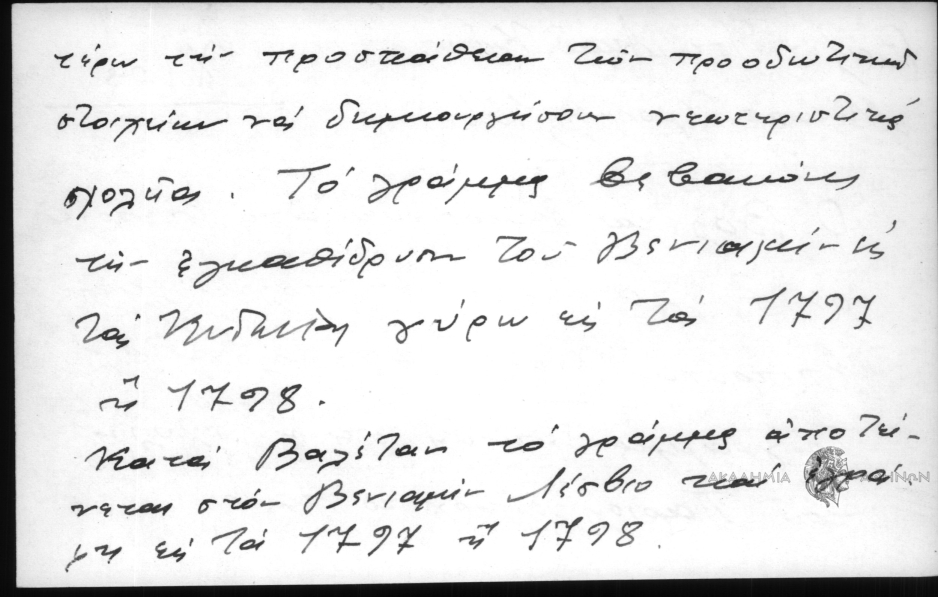 τέρω τήν προσπάθειαν τῶν προοδευτικῶν
στοιχείων νά δημιουργήσουν νεωτεριστικές
σχολεῖα. Τό γράμμα βεβαιώνει
τήν ἐγκαθίδρυσιν τοῦ Βενιαμίν εἰς
τάς Κυδωνίας γύρω εἰς τά 1797
ἤ 1798.
Κατά Βαλέταν τό γράμμα ἀποτεί-
νεται στόν Βενιαμίν Λέσβιο καί ἐγρά-
φη εἰς τά 1797 ἤ 1798.
ΑΚΑΔΗΜΙΑ ΑΘΗΝΩΝ